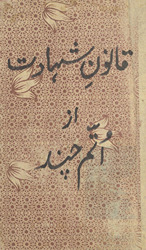 قانونِ شہادت
از
اُتّم چند